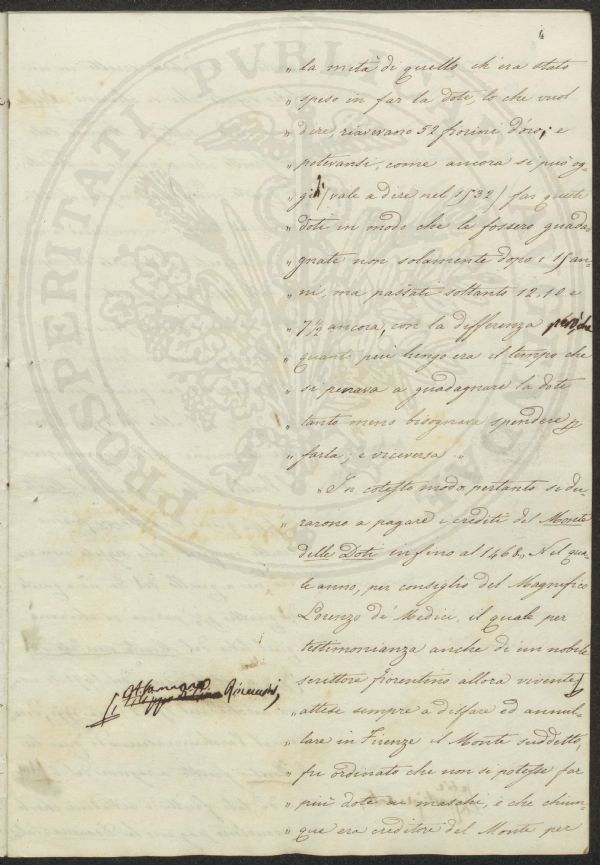 4
„ la metà di quello ch'era stato
„ speso in far la dote, lo che vuol
„ dire, riavevano 52 fiorini d'oro; e
„ potevansi, come ancora si può og-
„ gidì (vale a dire nel 1532) far queste
„ doti in modo che le fossero guada-
„ gnate non solamente dopo i 15 an-
„ ni, ma passati soltanto 12, 10 e
„ 7½ ancora, con la differenza però che
„ quanto più lungo era il tempo che
„ si penava a guadagnare la dote
„ tanto meno bisognava spendere p
„ farla; e viceversa „
„ In cotesto modo pertanto si du-
„ rarono a pagare i crediti del Monte
delle Doti infino al 1468. Nel qua-
le anno, per consiglio del Magnifico
Lorenzo de' Medici, il quale per
testimonianza anche di un nobile
scrittore fiorentino allora vivente
Alamanno Rinuccini,
„ attese sempre a disfare ed annul-
„ lare in Firenze il Monte suddetto,
„ fu ordinato che non si potesse far
„ più dote ai maschi, e che chiun-
„ que era creditore del Monte per
PROSPERITATI PVBLICAE